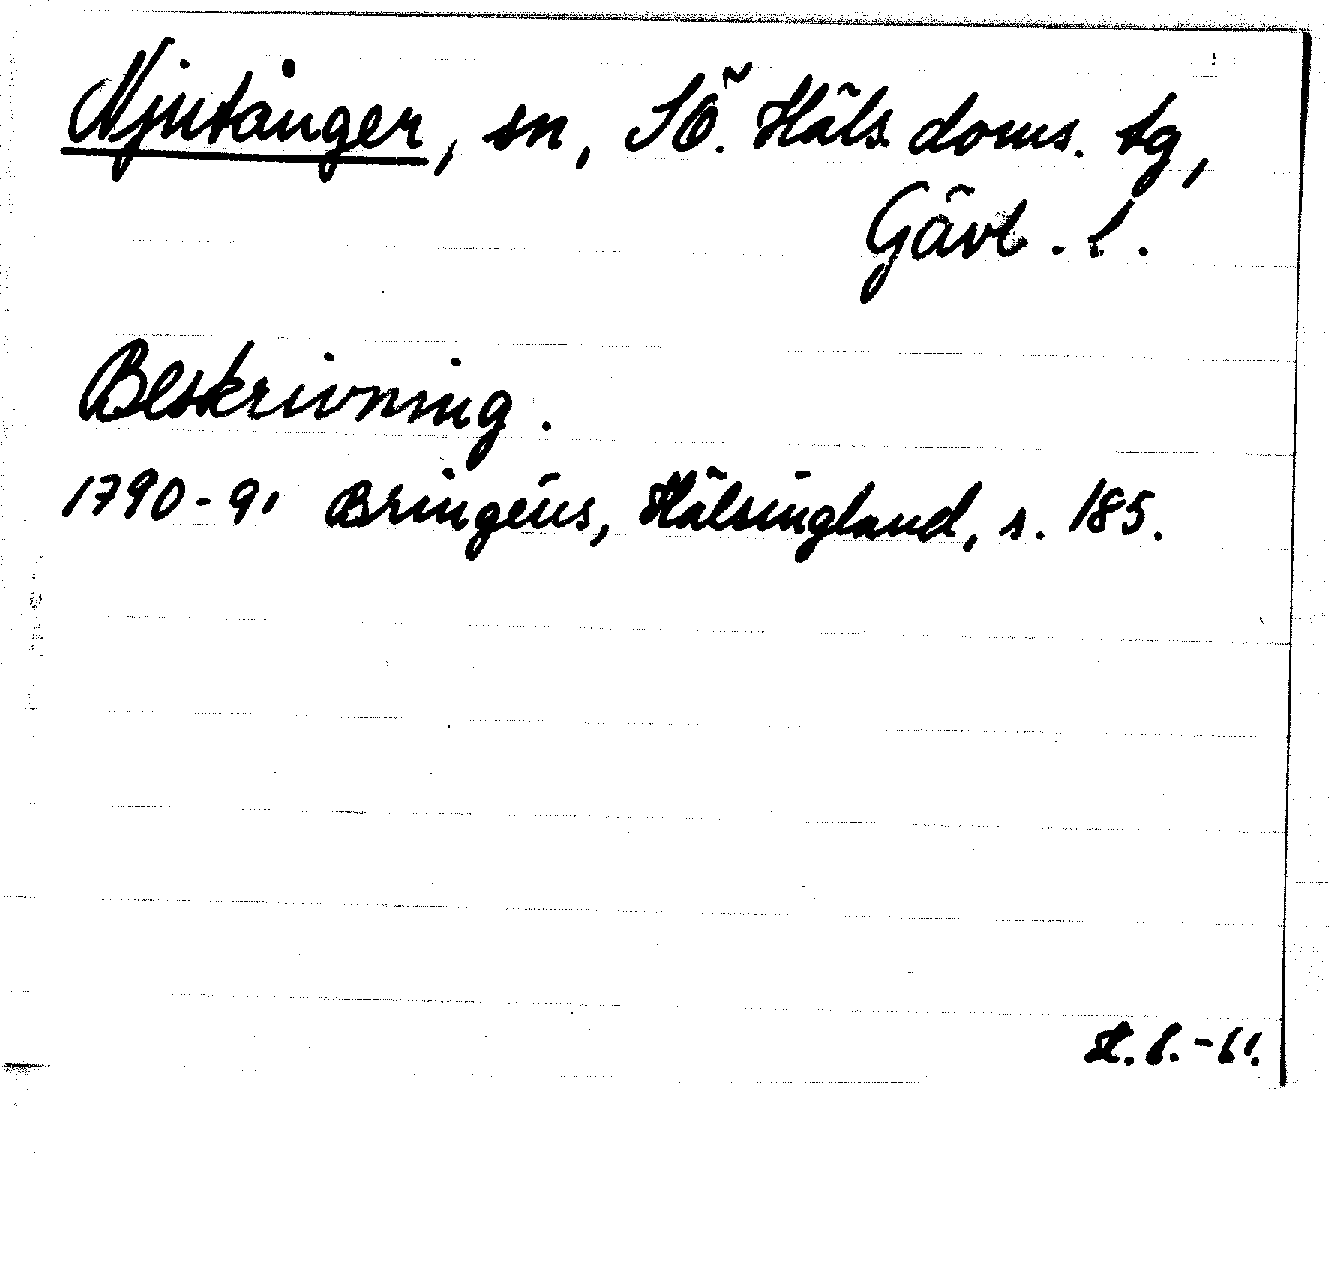 Njutånger, sn, SÖ. Häls. doms. tg,
Gävl. l.
Beskrivning.
1790-91 Bringéus, Hälsingland, s. 185.
-61.